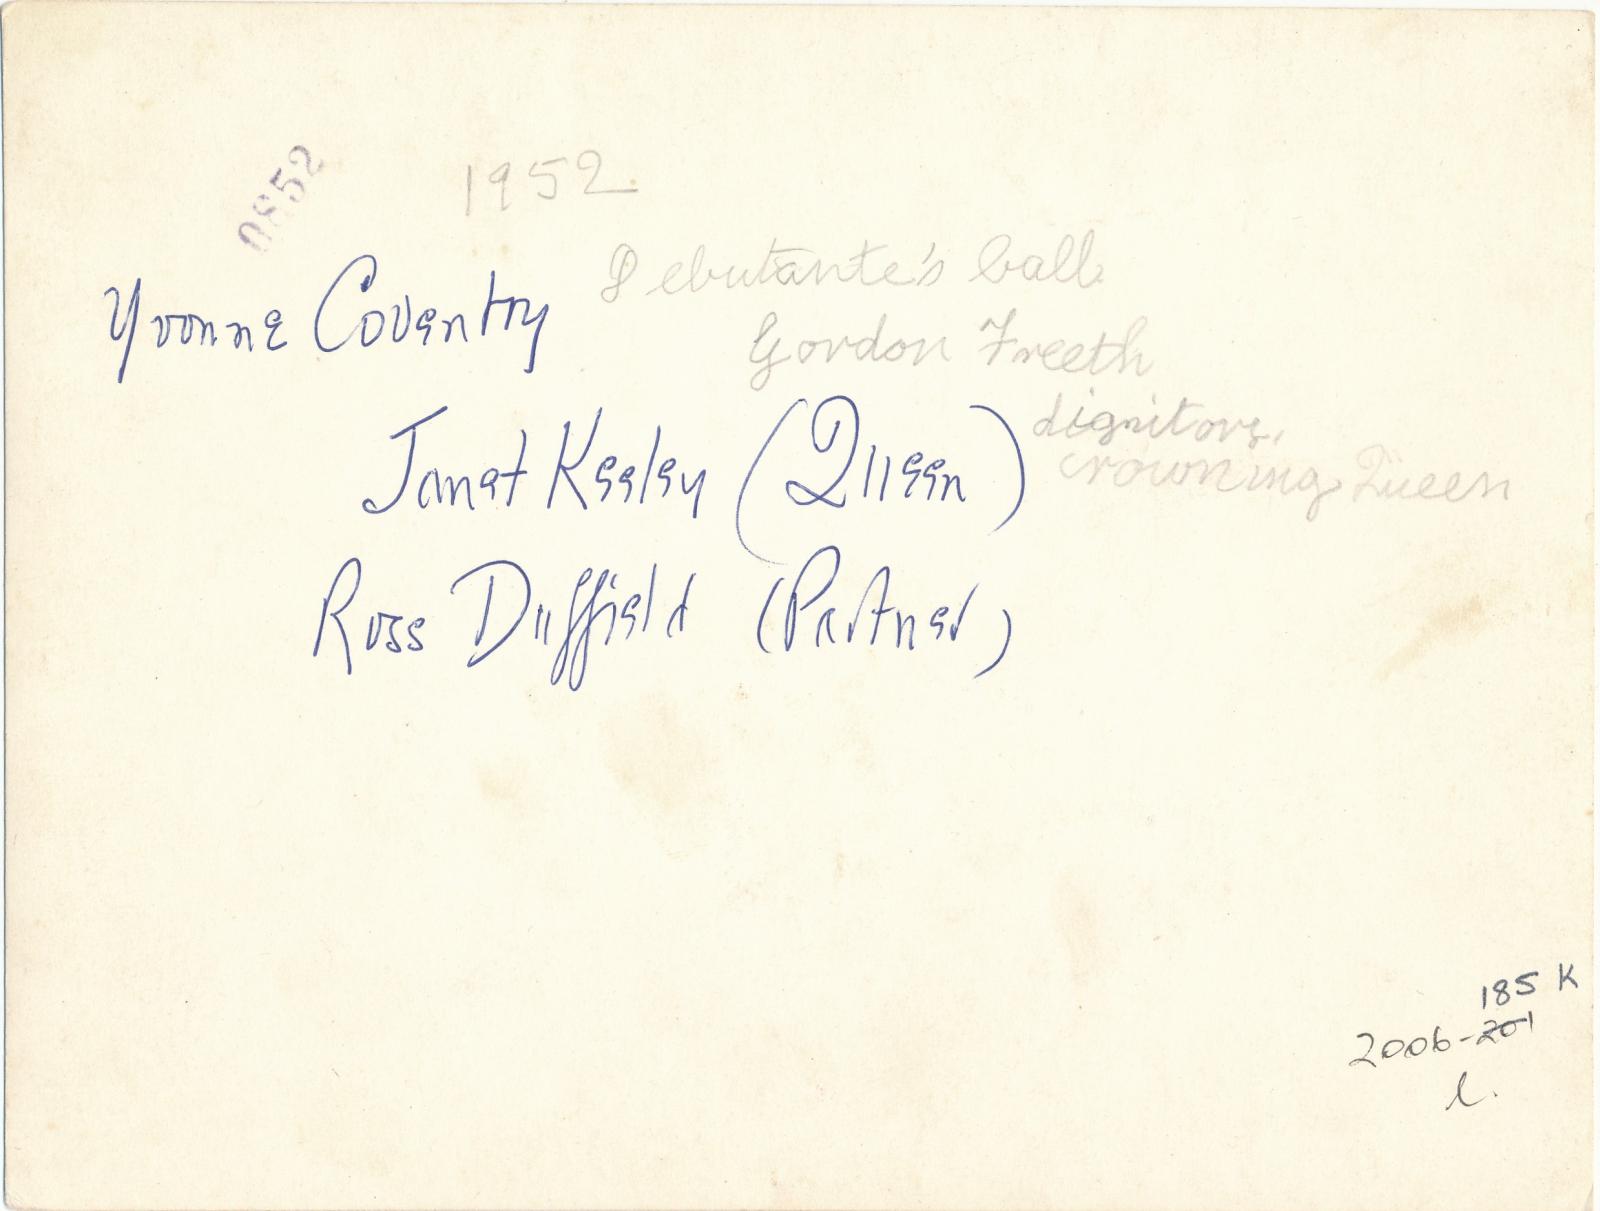 0852
1952
Debutante's ball
Yvonne Coventry
Gordon Freeth
Janet Keeley (Queen)
dignitory,
crowning Queen
Ross Duffield (Partner)
185 K
2006-201
l.